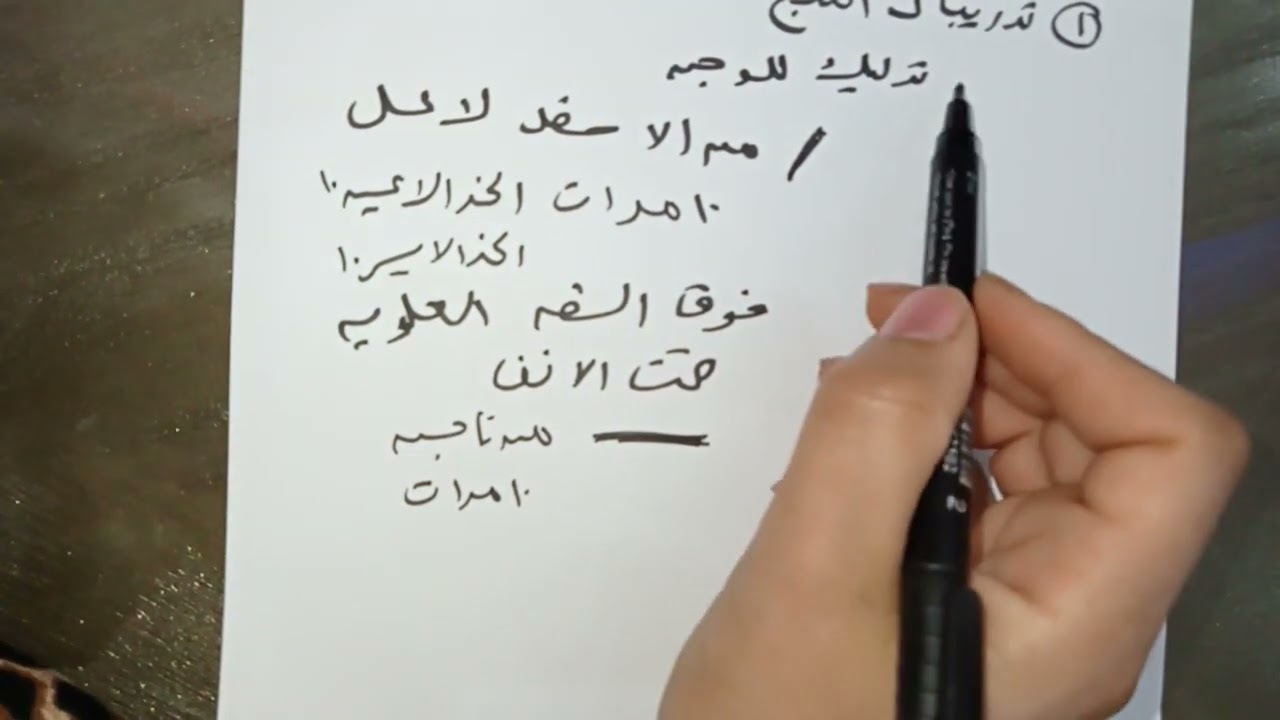 ① تدريبات
تدليك للوجه
/ من الاسفل لاعلى
١٠ مرات الخد الايمين ١٠
الخد الايسر ١٠
فوق الشفه العلويه
تحت الانف
من ناحيه
١٠ مرات